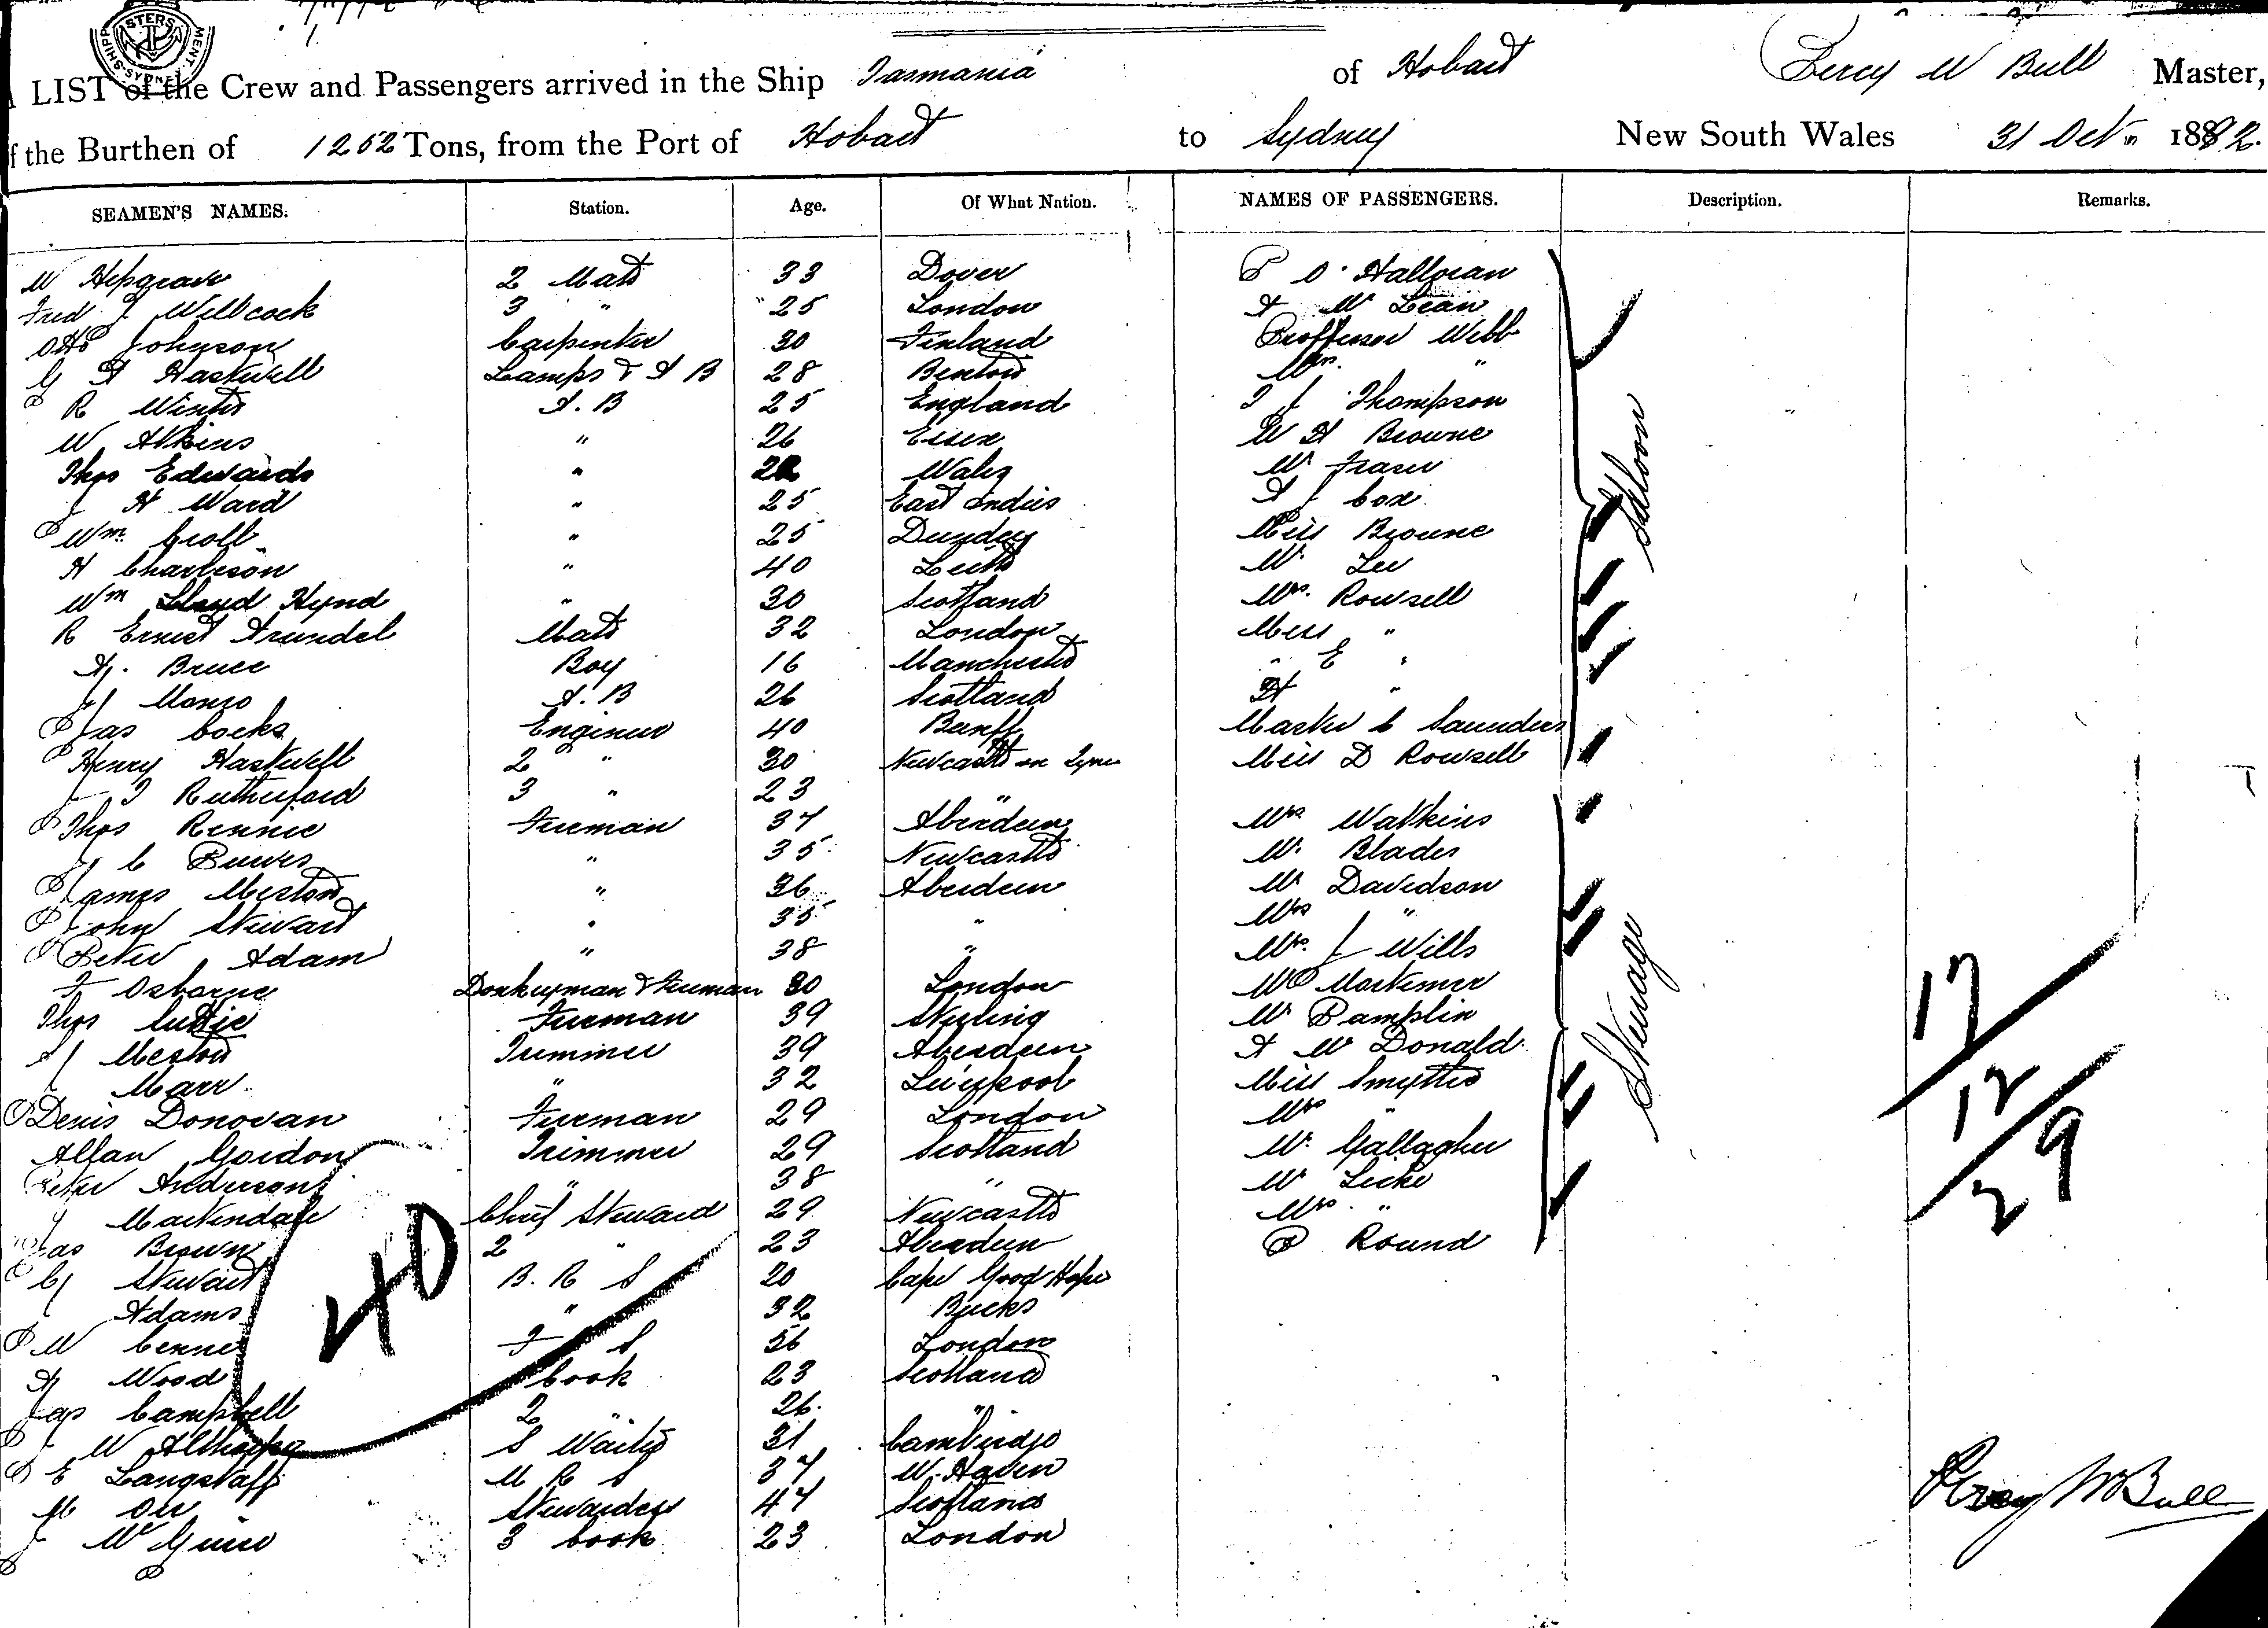 SHIPP MASTERS MENT. SYDNEY
A LIST of the Crew and Passengers arrived in the Ship Tasmania of Hobart Percy W Bull Master,
of the Burthen of 1252 Tons, from the Port of Hobart to Sydney New South Wales 31 Oct 1892.
SEAMEN'S NAMES. Station. Age. Of What Nation. NAMES OF PASSENGERS. Description. Remarks.
W Hepgrave 2 Mate 33 Dover P O'Halloran
Fred J Willcock 3 " 25 London A Mc Lean
Otto Johnson Carpenter 30 Finland Proffessor Webb
G H Hastwell Lamps & A B 28 Mrs. "
R Winter A. B 25 England T J Thompson
W Atkins " 26 Essex W H Browne
Thos Edwards " 22 Wales Mr Fraser
J H Ward " 25 East Indies A J Cox
Wm Croll " 25 Dundee Miss Browne
H Charleson " 40 Leith Mr. Lee
Wm Lloyd Hynd " 30 Scotland Mrs. Rowsell
R Ernest Arundel Mate 32 London Miss "
A. Bruce Boy 16 Manchester " E "
J Monro A. B 26 Scotland H "
Jas Cocks Engineer 40 Banff Master C Saunders
Henry Hastwell 2 " 30 Newcastle on Tyne Miss D Rowsell
J T Rutherford 3 " 23 "
Saloon
Thos Rennie Fireman 37 Aberdeen Mrs Watkins
J C " 35 Newcastle Mr. Blades
James Meston " 36 Aberdeen Mr Davidson
John Stewart " 35 " Mrs "
Peter Adam " 38 " Mrs. J Wills
F Osborne Donkeyman & Fireman 30 London Mortimer
Thos Fireman 39 Stirling Mr Pamplin
A J Meston Trimmer 39 Aberdeen A Mc Donald
Marr " 32 Liverpool Miss Smythe
Denis Donovan Fireman 29 London Mrs "
Allan Gordon Trimmer 29 Scotland Mr. Gallagher
Peter Anderson " 38 " Mr
J Martindale Chief Steward 29 Newcastle Mrs "
Jas Brown 2 " 23 Aberdeen P Round
Steerage
C J Stewart B. R S 20 Cape Good Hope
Adams " 32 Bucks
W F S 56 London
A Wood Cook 23 Scotland
Jas Campbell 2 " 26 "
J W Althorpe S Waiter 31 Cambridge
E Langstaff M R S 37 W. Haven
M Orr Stewardess 47 Scotland
J Mc Guire 3 Cook 23 London
40
17
12
29
Percy W Bull